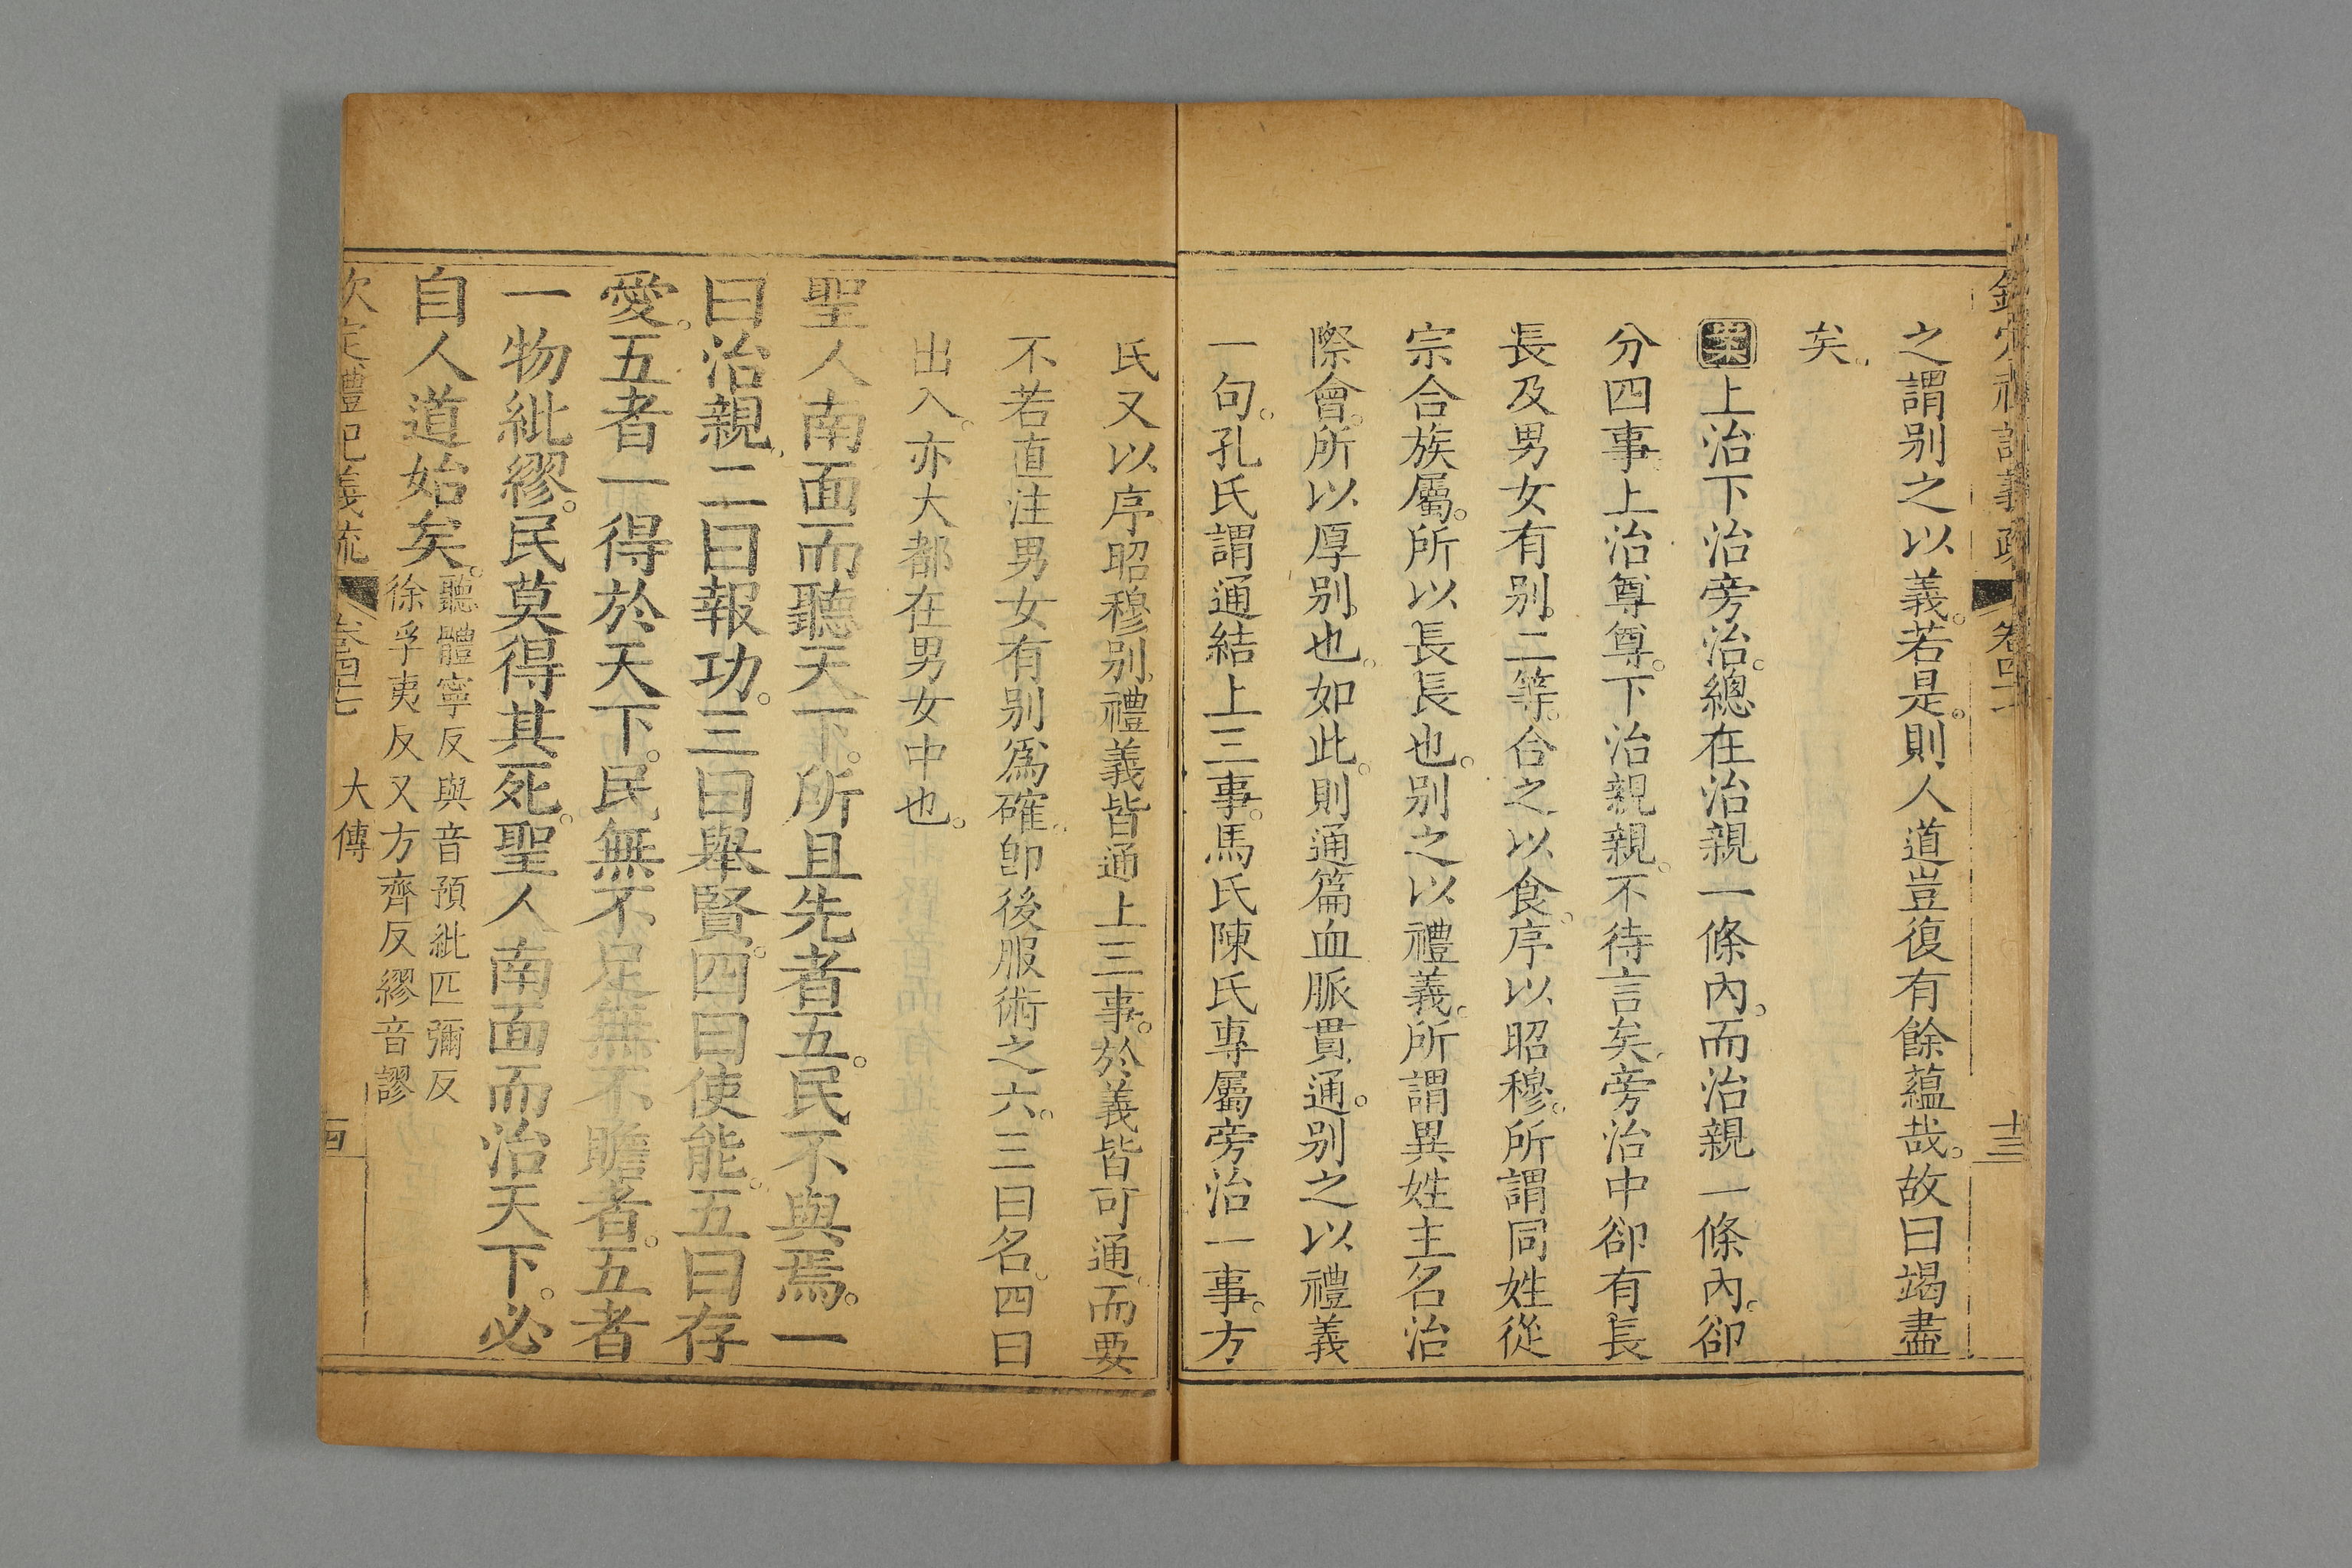 欽定禮記義疏 卷四十 十三
之謂别之以義。若是。則人道豈復有餘蘊哉。故曰竭盡
矣。
案上治下治旁治。總在治親一條內。而治親一條內。卻
分四事上治尊尊。下治親親。不待言矣。旁治中卻有長
長及男女有别。二等。合之以食。序以昭穆。所謂同姓從
宗合族屬。所以長長也。别之以禮義。所謂異姓主名治
際會。所以厚别也。如此。則通篇血脈貫通。别之以禮義
一句。孔氏謂通結上三事。馬氏陳氏專屬旁治一事。方
氏又以序昭穆别禮義皆通上三事。於義皆可通。而要
不若直注男女有别爲確。卽後服術之六。三曰名。四曰
出入。亦大都在男女中也。
聖人南面而聽天下。所且先者五。民不與焉。一
曰治親。二曰報功。三曰舉賢。四曰使能。五曰存
愛。五者一得於天下。民無不足無不贍者。五者
一物紕繆。民莫得其死。聖人南面而治天下。必
自人道始矣。
聽體寧反與音預紕匹彌反
徐孚夷反又方齊反繆音謬
欽定禮記義疏 卷四十七 大傳 十四